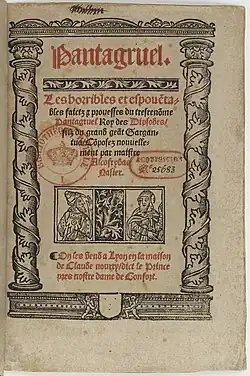 Pantagruel.
Les horribles et espouẽta-
bles faictz ⁊ prouesses du tresrenõme
Pantagruel Roy des Dipsodes/
filz du grand geãt Gargan-
tua/ Cõposez nouuelle-
ment par maistre
Alcofrybas
Nasier.
25683
¶ On les vend a Lyon en la maison
de Claude nourry/dict le Prince
pres nostre dame de Confort.